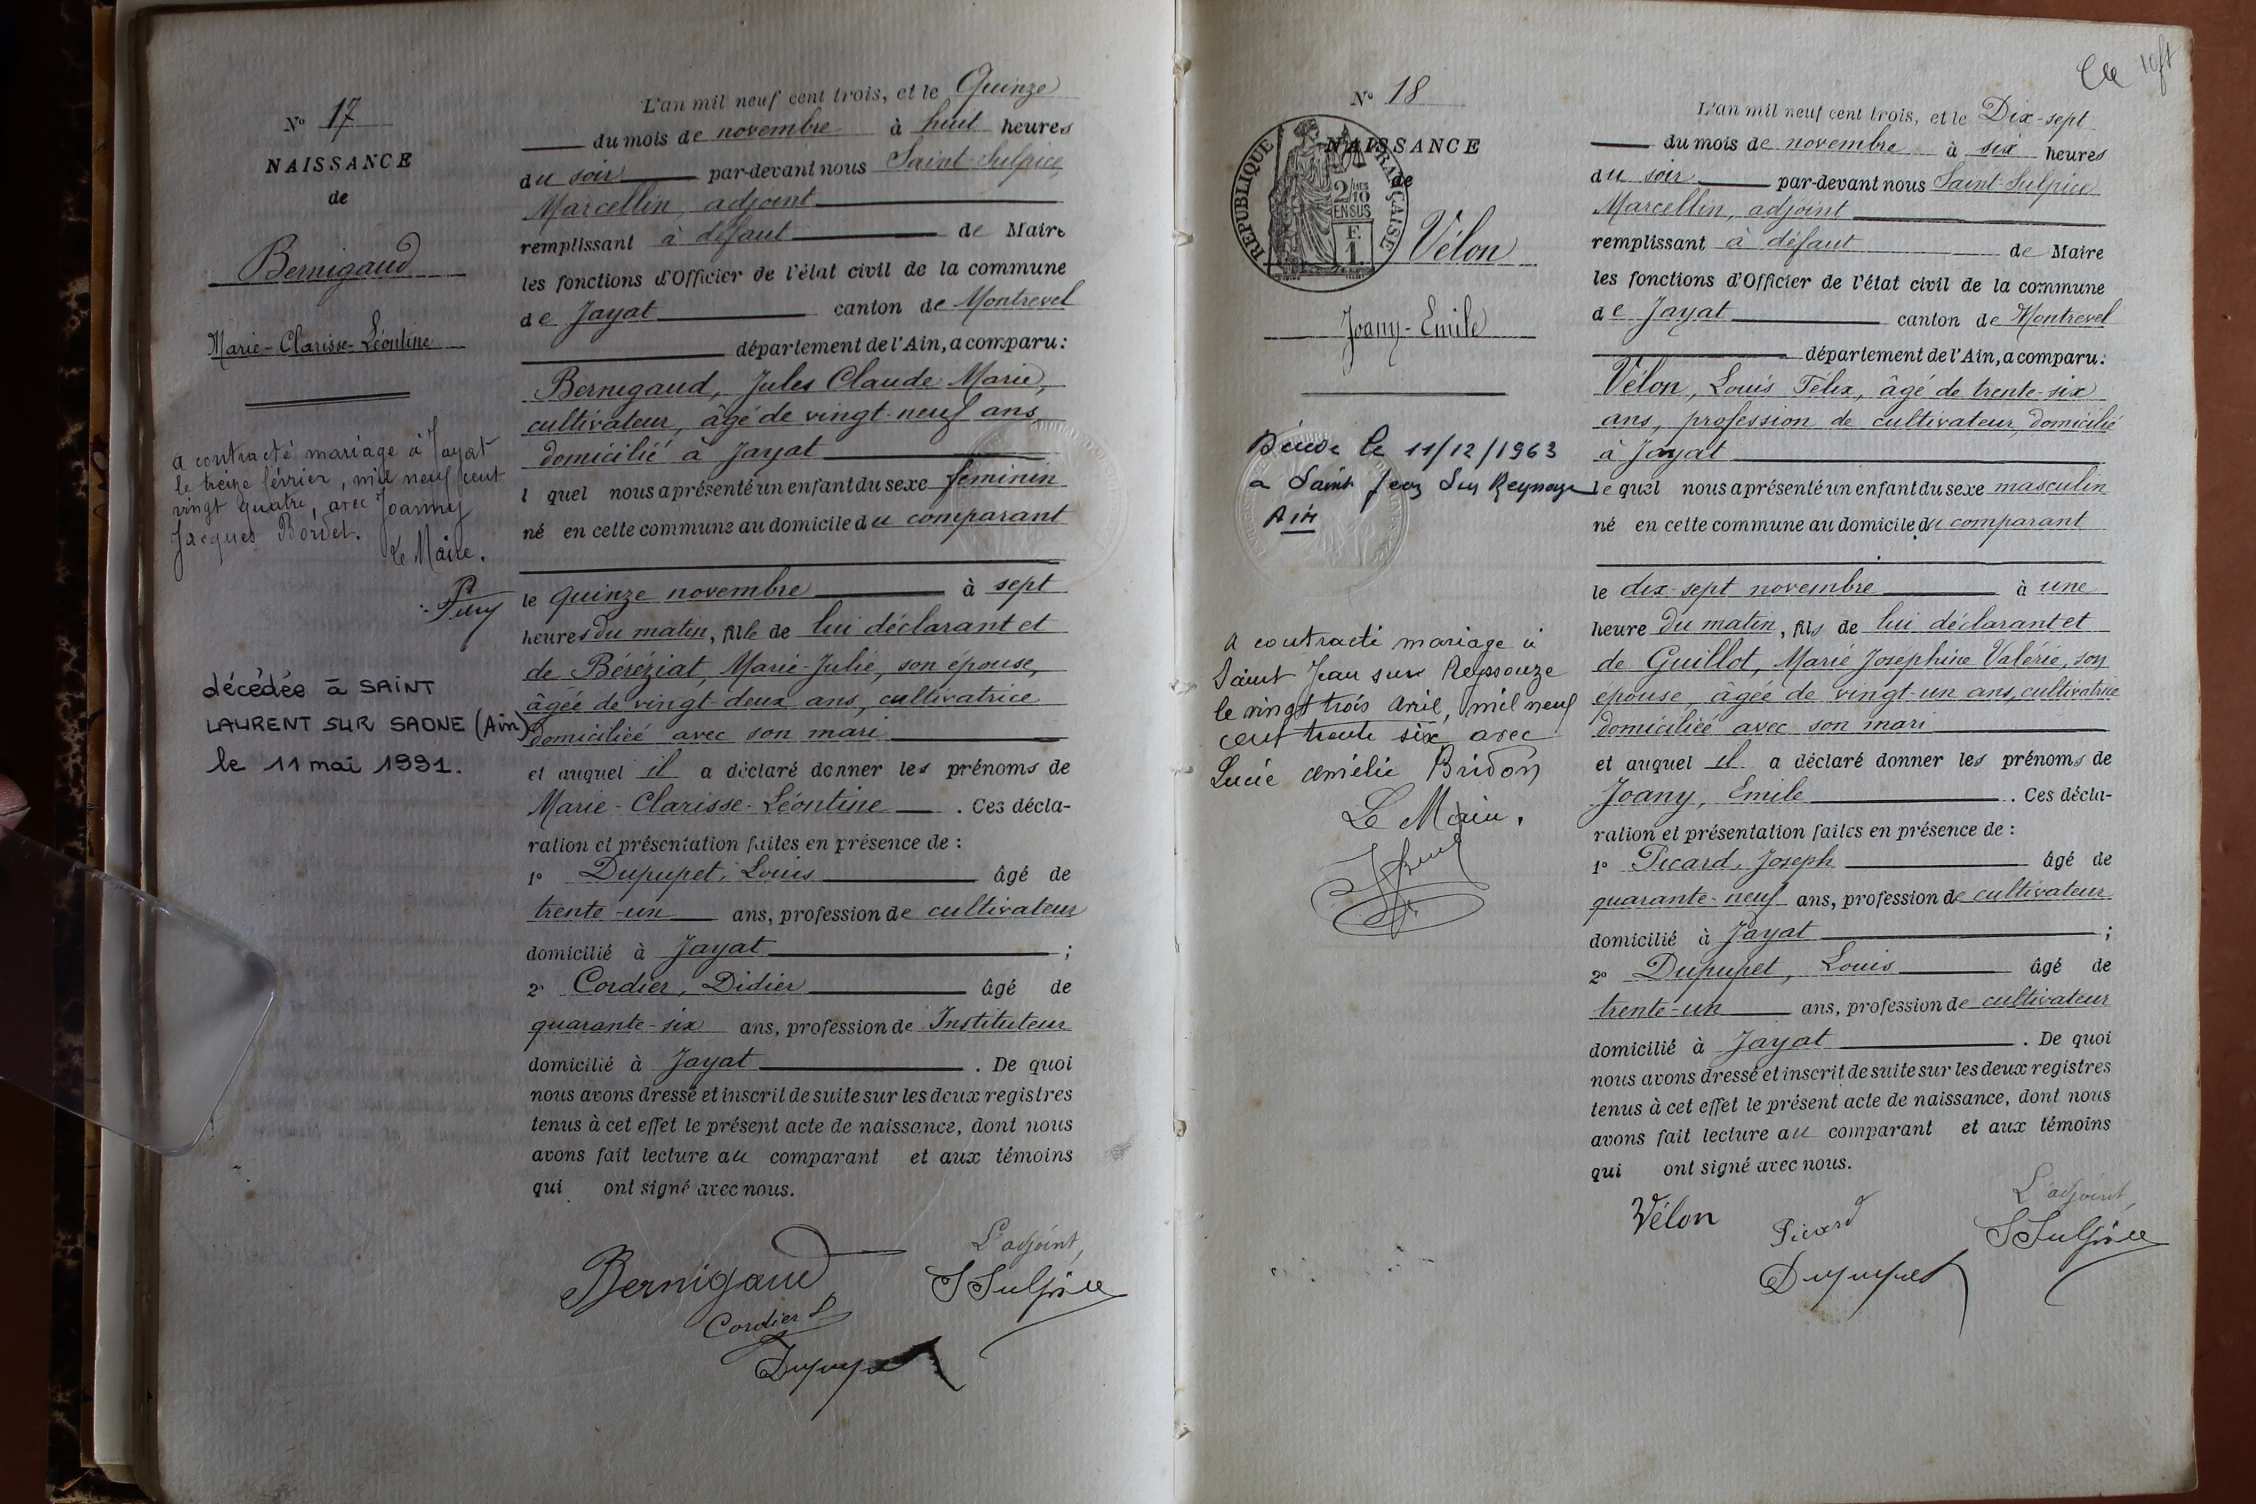 N° 17
NAISSANCE
de
Bernigaud
Marie-Clarisse-Léontine
a contracté mariage à Jayat
le treize février, mil neuf cent
vingt quatre, avec Joanny
Jacques Bordet.
Le Maire.
décédée à SAINT
LAURENT SUR SAONE (Ain)
le 11 mai 1991.
L'an mil neuf cent trois, et le Quinze
du mois de novembre à huit heures
du soir par-devant nous Saint-Sulpice
Marcellin, adjoint
remplissant à défaut de Maire
les fonctions d'Officier de l'état civil de la commune
de Jayat canton de Montrevel
département de l'Ain, a comparu :
Bernigaud, Jules Claude Marie,
cultivateur, âgé de vingt-neuf ans,
domicilié à Jayat
l quel nous a présenté un enfant du sexe féminin
né en cette commune au domicile du comparant
le quinze novembre à sept
heures du matin, fille de lui déclarant et
de Béréziat, Marie-Julie, son épouse,
âgée de vingt-deux ans, cultivatrice
domiciliée avec son mari
et auquel il a déclaré donner les prénoms de
Marie-Clarisse-Léontine . Ces décla-
ration et présentation faites en présence de :
1° Dupupet, Louis âgé de
trente-un ans, profession de cultivateur
domicilié à Jayat ;
2° Cordier, Didier âgé de
quarante-six ans, profession de Instituteur
domicilié à Jayat . De quoi
nous avons dressé et inscrit de suite sur les deux registres
tenus à cet effet le présent acte de naissance, dont nous
avons fait lecture au comparant et aux témoins
qui ont signé avec nous.
L'adjoint,
Bernigaud S Sulpice
Cordier D
Dupupet
N° 18
NAISSANCE
de
RÉPUBLIQUE FRANÇAISE
2/10
EN SUS
F.
1
Vélon
Joany-Emile
Décédé le 11/12/1963
a Saint Jean Sur Reyssouze
Ain
a contracté mariage à
Saint Jean sur Reyssouze
le vingt trois avril, mil neuf
cent trente six avec
Lucie Amélie Bridon
Le Maire.
L'an mil neuf cent trois, et le Dix-sept
du mois de novembre à six heures
du soir par-devant nous Saint-Sulpice
Marcellin, adjoint
remplissant à défaut de Maire
les fonctions d'Officier de l'état civil de la commune
de Jayat canton de Montrevel
département de l'Ain, a comparu :
Vélon, Louis Félix, âgé de trente-six
ans, profession de cultivateur, domicilié
à Jayat
le quel nous a présenté un enfant du sexe masculin
né en cette commune au domicile du comparant
le dix-sept novembre à une
heure du matin, fils de lui déclarant et
de Guillot, Marie Josephine Valérie, son
épouse, âgée de vingt-un ans, cultivatrice
domiciliée avec son mari
et auquel il a déclaré donner les prénoms de
Joany, Emile . Ces décla-
ration et présentation faites en présence de :
1° Picard, Joseph âgé de
quarante-neuf ans, profession de cultivateur
domicilié à Jayat ;
2° Dupupet, Louis âgé de
trente-un ans, profession de cultivateur
domicilié à Jayat . De quoi
nous avons dressé et inscrit de suite sur les deux registres
tenus à cet effet le présent acte de naissance, dont nous
avons fait lecture au comparant et aux témoins
qui ont signé avec nous.
L'adjoint,
Vélon Picard S Sulpice
Dupupet